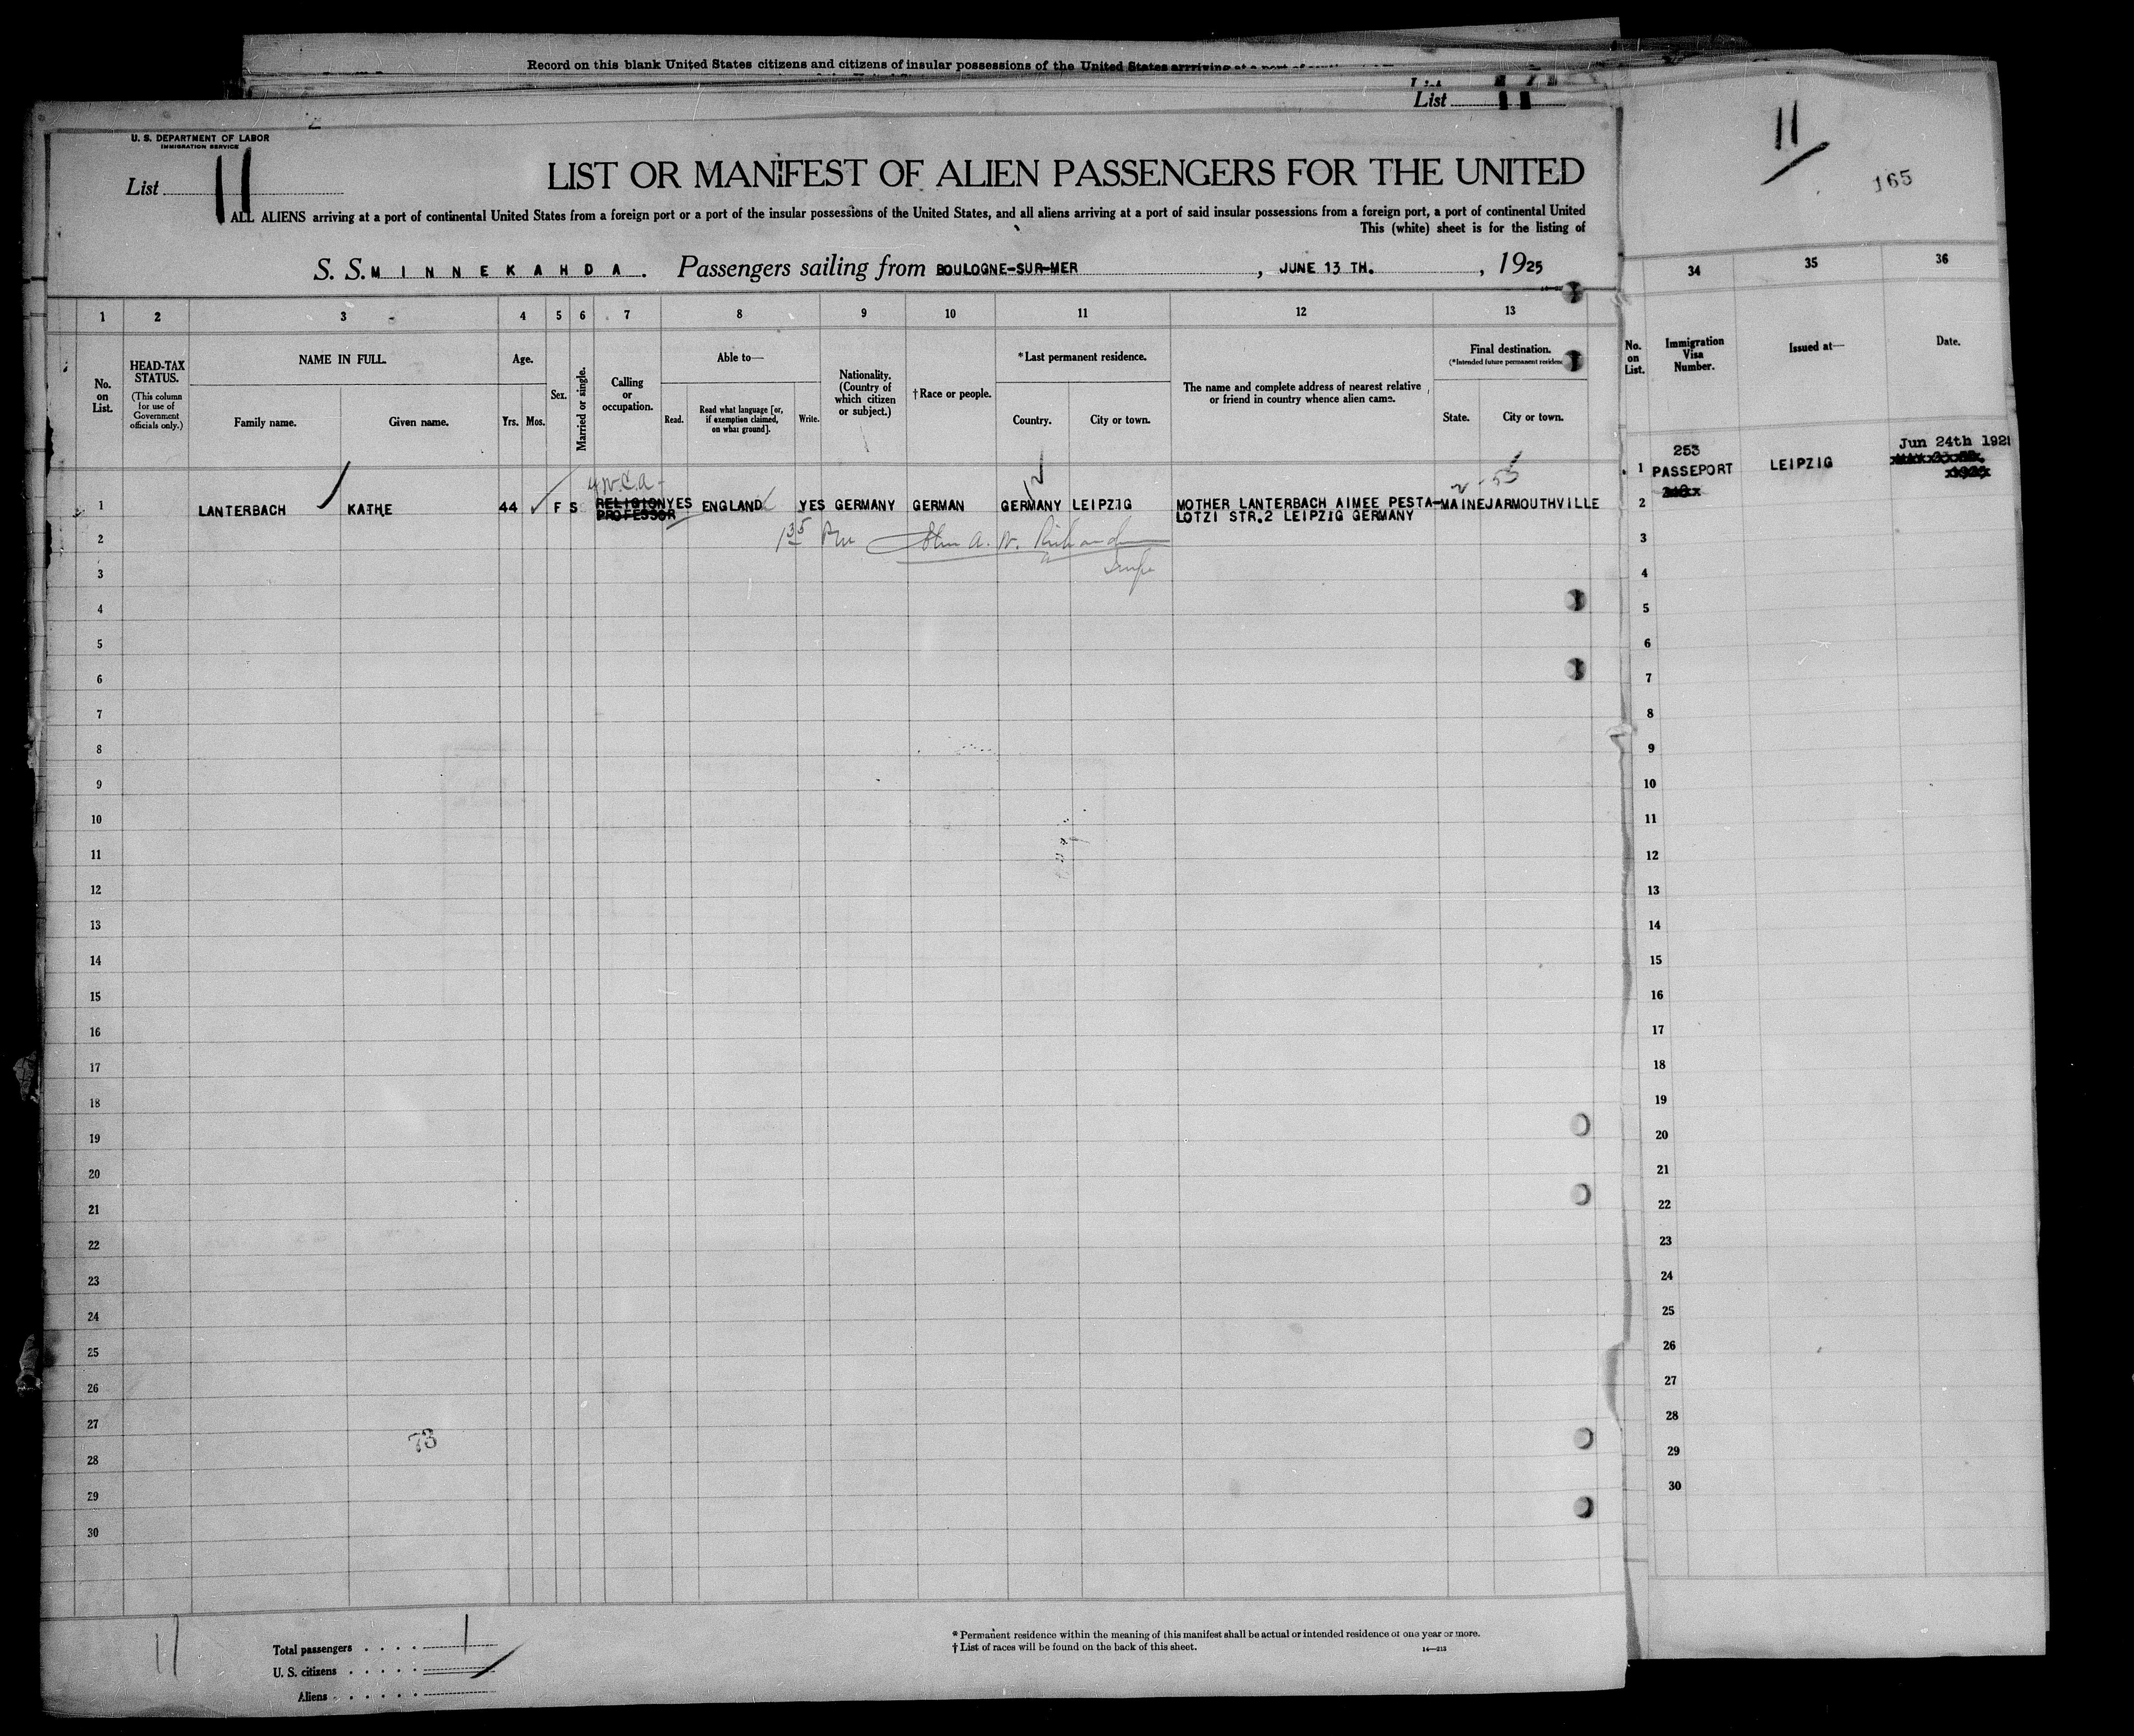 Record on this blank United States citizens and citizens of insular possessions of the United States arriving at a port of
List
List 11
U. S. DEPARTMENT OF LABOR
IMMIGRATION SERVICE
List 11
LIST OR MANIFEST OF ALIEN PASSENGERS FOR THE UNITED
ALL ALIENS arriving at a port of continental United States from a foreign port or a port of the insular possessions of the United States, and all aliens arriving at a port of said insular possessions from a foreign port, a port of continental United
This (white) sheet is for the listing of
S. S. MINNEKAHDA. Passengers sailing from BOULOGNE-SUR-MER, JUNE 13 TH., 1925
1 2 3 4 5 6 7 8 9 10 11 12 13
No. on List.
HEAD-TAX STATUS.
(This column for use of Government officials only.)
NAME IN FULL.
Family name. Given name.
Age.
Yrs. Mos.
Sex.
Married or single.
Calling or occupation.
Able to—
Read. Read what language [or, if exemption claimed, on what ground]. Write.
Nationality. (Country of which citizen or subject.)
†Race or people.
*Last permanent residence.
Country. City or town.
The name and complete address of nearest relative or friend in country whence alien came.
Final destination.
(*Intended future permanent residence
State. City or town.
Y.W.C.A. 2 - 53
1 LANTERBACH KATHE 44 F S RELIGION YES ENGLAND YES GERMANY GERMAN GERMANY LEIPZIG MOTHER LANTERBACH AIMEE PESTA- MAINE JARMOUTHVILLE
PROFESSOR LOTZI STR.2 LEIPZIG GERMANY
2 135 John A. W.
3
4
5
6
7
8
9
10
11
12
13
14
15
16
17
18
19
20
21
22
23
24
25
26
27
73
28
29
30
11
Total passengers 1
U. S. citizens
Aliens
* Permanent residence within the meaning of this manifest shall be actual or intended residence of one year or more.
† List of races will be found on the back of this sheet.
14—213
11
165
34 35 36
No. on List.
Immigration Visa Number.
Issued at—
Date.
253 Jun 24th 192
1 PASSEPORT LEIPZIG
2
3
4
5
6
7
8
9
10
11
12
13
14
15
16
17
18
19
20
21
22
23
24
25
26
27
28
29
30